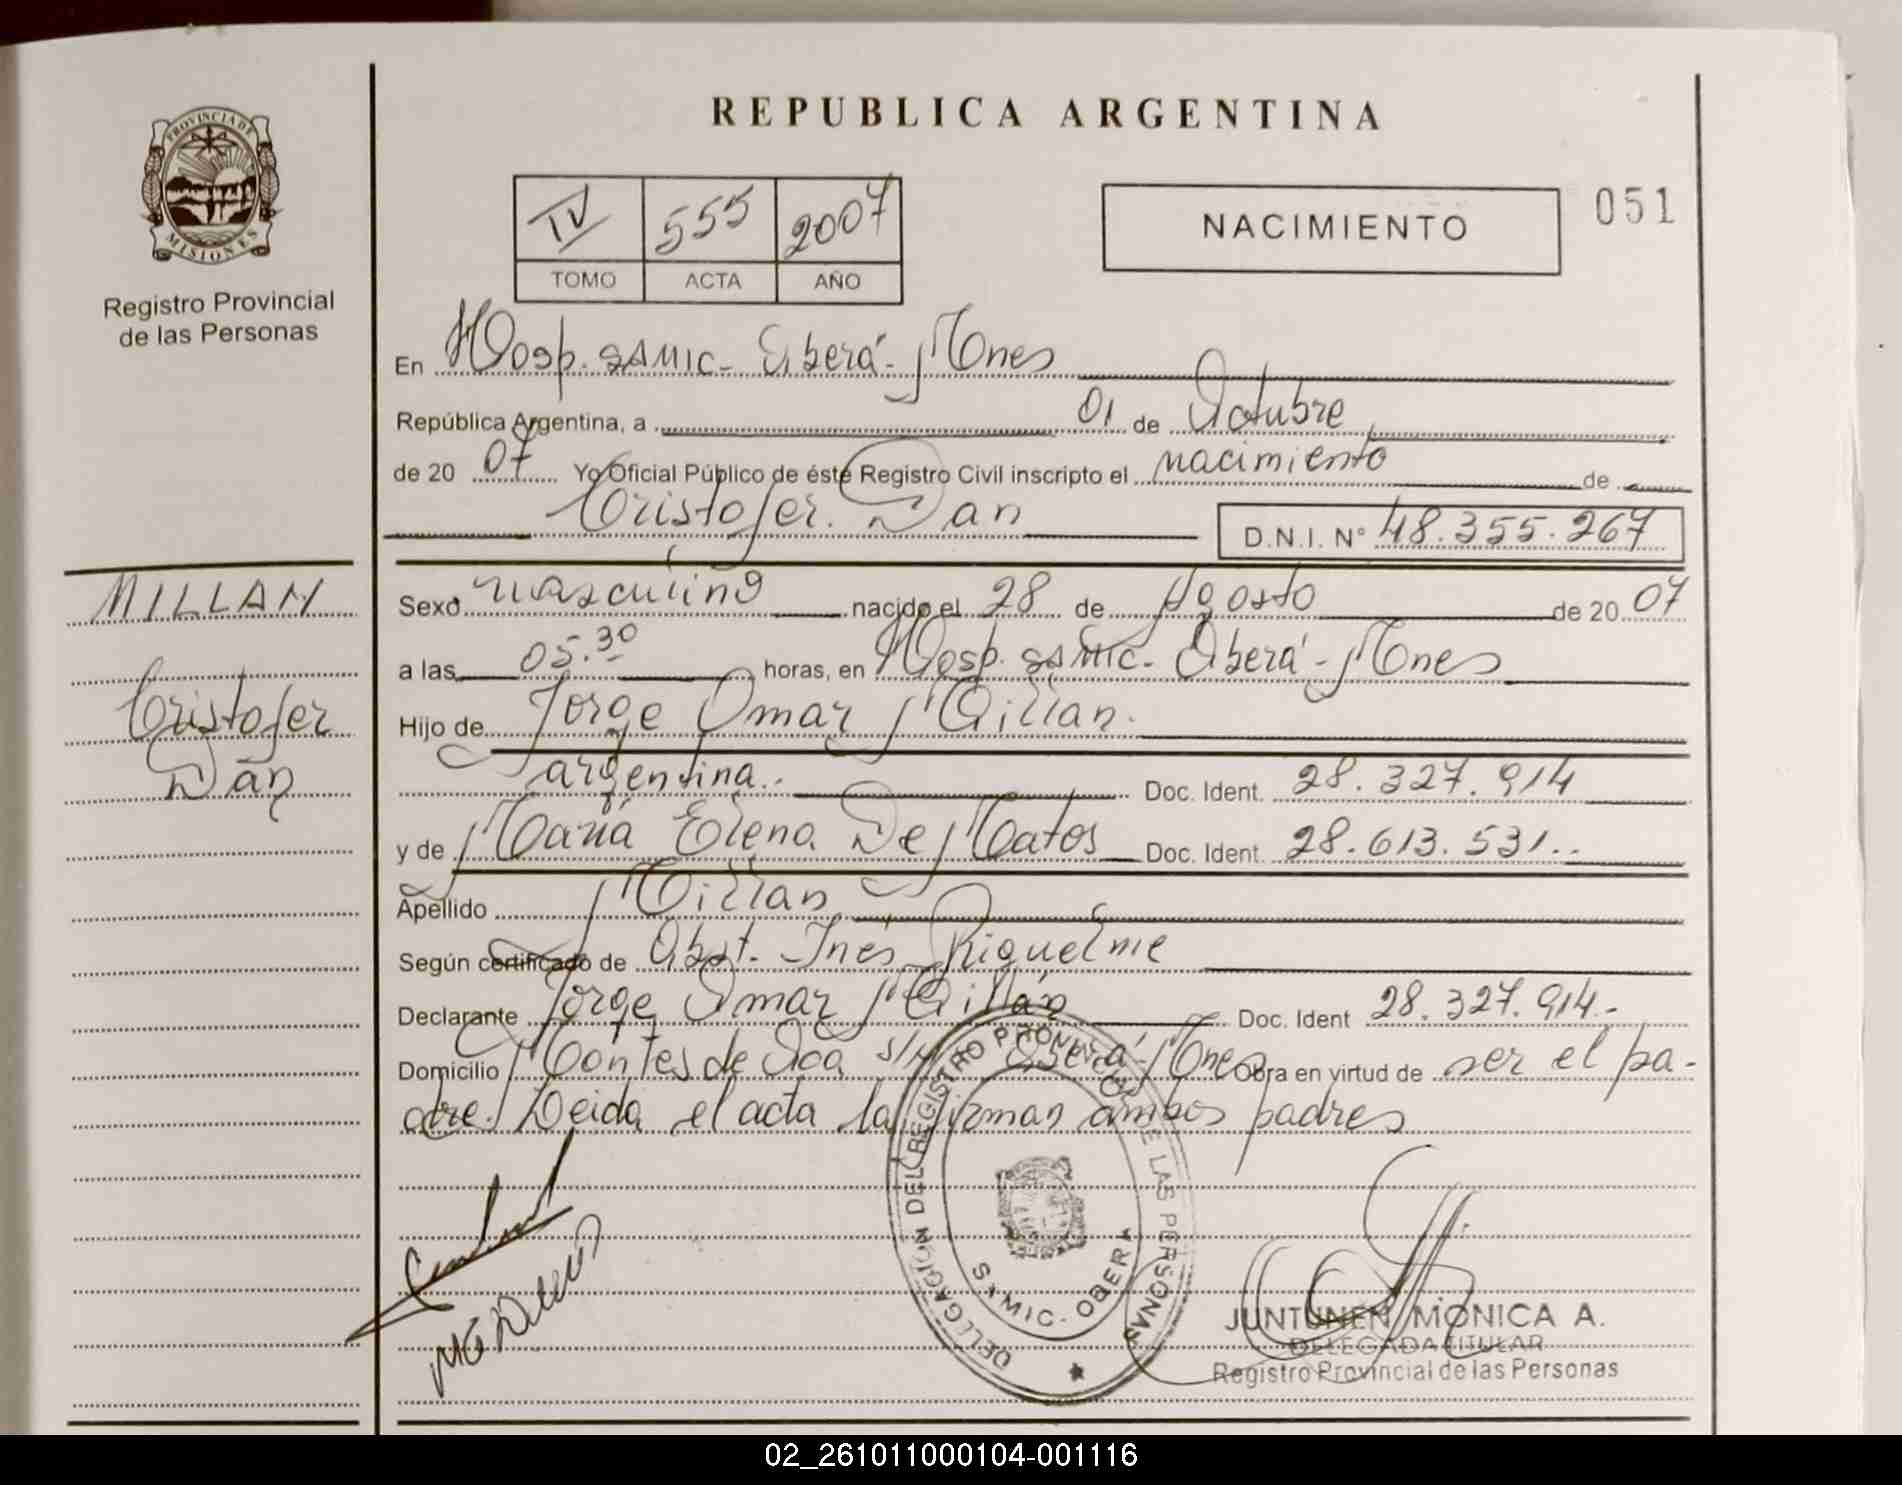 REPUBLICA ARGENTINA
PROVINCIA DE MISIONES
Registro Provincial
de las Personas
IV 555 2007
TOMO ACTA AÑO
NACIMIENTO
051
En Hosp. SAMIC- Oberá- Mnes
República Argentina, a 01 de Octubre
de 2007 Yo Oficial Público de éste Registro Civil inscripto el nacimiento de
Cristofer Dan D.N.I. N° 48.355.267
MILLAN
Cristofer
Dan
Sexo masculino nacido el 28 de Agosto de 2007
a las 05.30 horas, en Hosp. SAMIC- Oberá- Mnes
Hijo de Jorge Omar Millan.
argentina.. Doc. Ident. 28.327.914
y de María Elena De Matos Doc. Ident. 28.613.531..
Apellido Millan
Según certificado de Obst. Inés Riquelme
Declarante Jorge Omar Millán Doc. Ident 28.327.914.-
Domicilio Montes de Oca s/n Oberá- Mnes Obra en virtud de ser el pa-
dre. Leida el acta la firman ambos padres
DELEGACION DEL REGISTRO PROVINCIAL DE LAS PERSONAS
SAMIC - OBERA
JUNTUNEN MONICA A.
DELEGADA TITULAR
Registro Provincial de las Personas
02_261011000104-001116